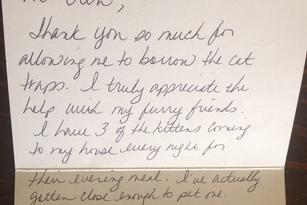 Thank you so much for
allowing me to borrow the cat
traps. I truly appreciate the
help with my furry friends.
I have 3 of the kittens coming
to my house every night for
their evening meal. I've actually
gotten close enough to pet one.